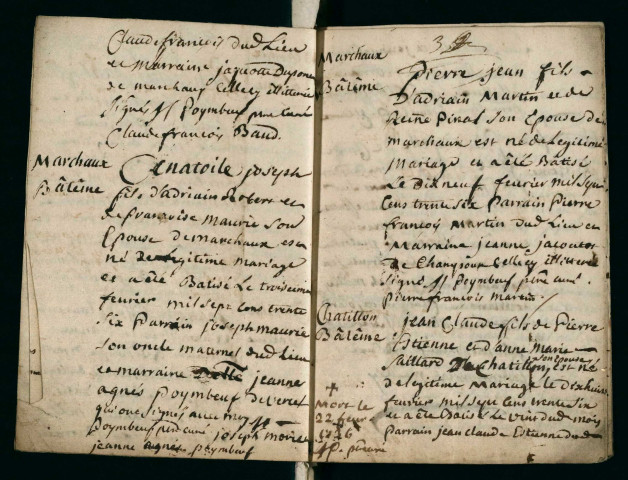 Claude francois dud Lieu
et Marraine jaquotte Dupone
de marchaux Cellecy illitterée
signés JJ Poymbeuf ptre curé
Claude francois Baud.
Marchaux
Bâtême
Anatoile joseph
fils d'adriain Robert et
de françoise maurie son
Epouse de marchaux est
né de Legitime mariage
et a été Batisé Le troisieme
fevrier mil sept cens trente
six Parrain joseph maurie
son oncle maternel dud Lieu
et marraine jeanne
agnés poymbeuf de
qui ont signés avec moy JJ
poymbeuf ptre curé joseph morie
jeanne agnés Poymbeuf
3
Marchaux
Bâtême
Pierre jean fils
D'adriain Martin et de
Reine Pinal son Epouse de
marchaux est né de Legitime
Mariage et a été Batisé
Le Dixneuf fevrier mil sept
Cens trente six Parrain Pierre
francois Martin dud Lieu et
Marraine jeanne jacoutot
de Champoux Celle cy illitterée
signés JJ Poymbeuf ptre curé
Pierre francois Martin
Chatillon
Bâtême
jean Claude fils de Pierre
Estienne et d'anne marie
Saillard son epouse de Chatillon est né
de legitime Mariage le Dixhuit
fevrier mil sept Cens trente six
et a été Batisé Le vint dud mois
Parrain jean claude Estienne dud
+
Mort le
22 fevr
1736
JP. ptre curé